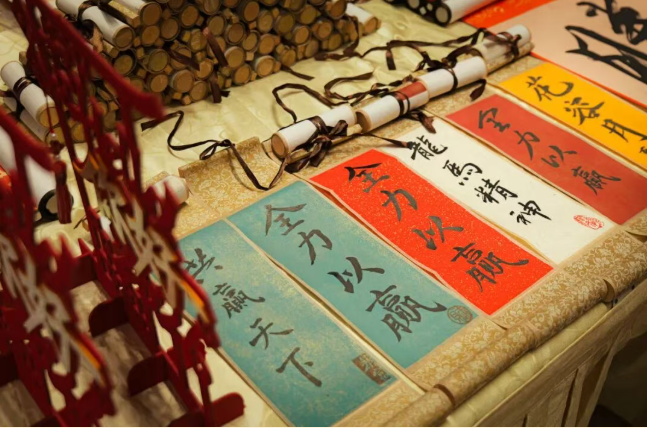 共赢天下
全力以赢
全力以赢
龍馬精神
全力以赢
花容月